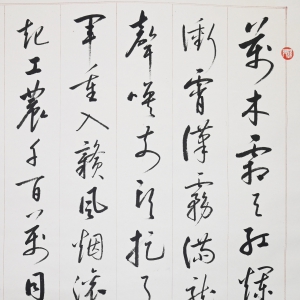 萬木霜天紅爛
衝霄漢霧滿龍
聲喚前頭捉了
軍重入贛風烟滾
起工農千百萬同